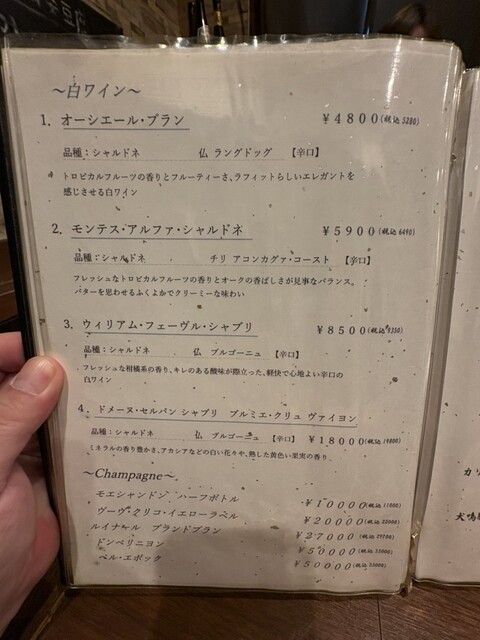 ～白ワイン～
1. オーシエール・ブラン ￥4800(税込5280)
品種：シャルドネ 仏 ラングドッグ 【辛口】
トロピカルフルーツの香りとフルーティーさ、ラフィットらしいエレガントを
感じさせる白ワイン
2. モンテス・アルファ・シャルドネ ￥5900(税込6490)
品種：シャルドネ チリ アコンカグァ・コースト 【辛口】
フレッシュなトロピカルフルーツの香りとオークの香ばしさが見事なバランス。
バターを思わせるふくよかでクリーミーな味わい
3. ウィリアム・フェーヴル・シャブリ ￥8500(税込9350)
品種：シャルドネ 仏 ブルゴーニュ 【辛口】
フレッシュな柑橘系の香り、キレのある酸味が際立った、軽快で心地よい辛口の
白ワイン
4. ドメーヌ・セルバン シャブリ プルミエ・クリュ ヴァイヨン
品種：シャルドネ 仏 ブルゴーニュ 【辛口】 ￥18000(税込19800)
ミネラルの香り豊かさ、アカシアなどの白い花々や、熟した黄色い果実の香り
～Champagne～
モエシャンドン ハーフボトル ￥10000(税込11000)
ヴーヴ・クリコ・イエローラベル ￥20000(税込22000)
ルイナール ブランドブラン ￥27000(税込29700)
ドンペリニヨン ￥50000(税込55000)
ベル・エポック ￥50000(税込55000)
カリ
犬鳴